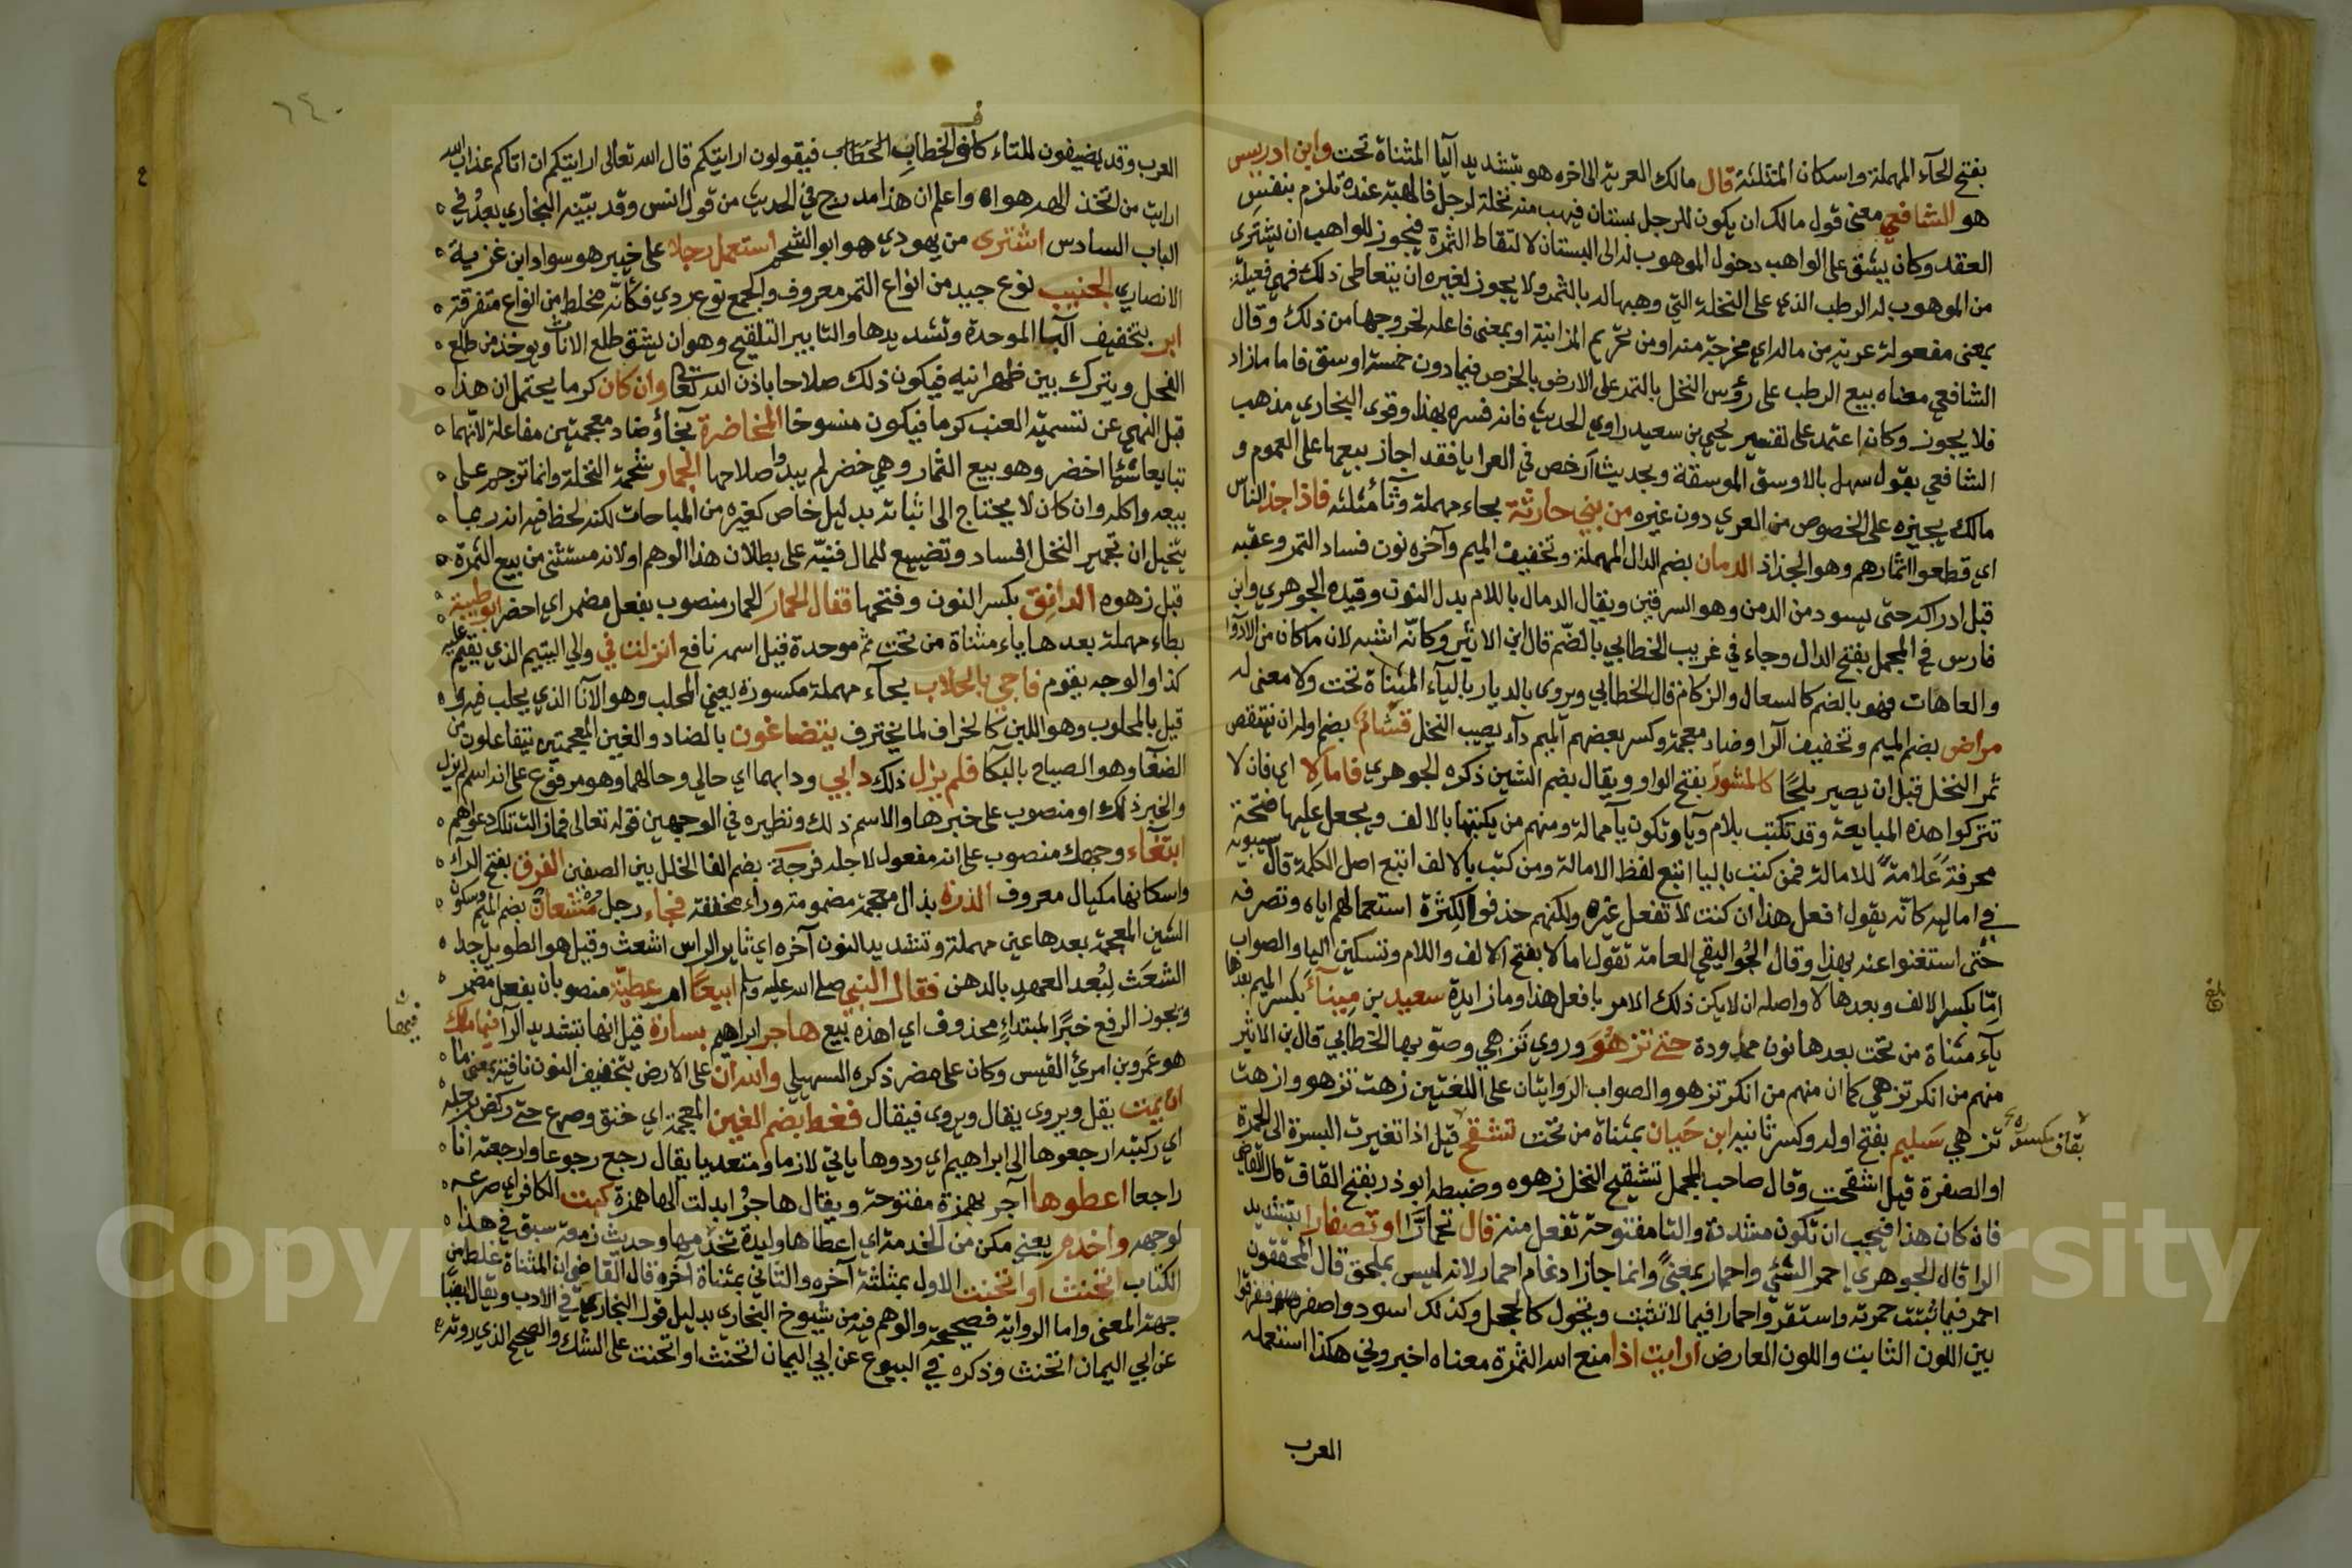 بفتح الحآء المهملة واسكان المثلثة قال مالك العرية الى اخره هو بتشديد اليا المثناة تحت وابن ادريس
هو الشافعي معنى قول مالك ان يكون للرجل بستان فيهب منه نخلة لرجل فالهبة عنده تلزم بنفس
العقد وكان يشق على الواهب دخول الموهوب له الى البستان لالتقاط الثمرة فيجوز للواهب ان يشترى
من الموهوب له الرطب الذي على النخلة التي وهبها له بالثمر ولا يجوز لغيره ان يتعاطى ذلك فهي فعيلة
بمعنى مفعولة عرية من ماله اي مخرجة منه او من تحريم المزابنة او بمعنى فاعلة لخروجها من ذلك وقال
الشافعي معناه بيع الرطب على رؤس النخل بالتمر على الارض بالخرص فيما دون خمسة اوسق فاما مازاد
فلا يجوز وكانه اعتمد على تفسير يحيى بن سعيد راوي الحديث فانه فسره بهذا وقوى البخاري مذهب
الشافعي بقول سهل بالاوسق الموسقة وبحديث ارخص في العرايا فقد اجاز بيعها على العموم و
مالك يجيزه على الخصوص من المعري دون غيره من بني حارثة بحاء مهملة وثآ مثلثه فاذا جذ الناس
اي قطعوا اثمارهم وهو الجذاذ الدمان بضم الدال المهملة وتخفيف الميم وآخره نون فساد التمر وعفنه
قبل ادراكه حتى يسود من الدمن وهو السرقين ويقال الدمال باللام بدل النون وقيده الجوهري وابن
فارس في المجمل بفتح الدال وجاء في غريب الخطابي بالضم قال ابن الاثير وكانّه اشبه لان ماكان من الادوا
والعاهات فهو بالضم كالسعال والزكام قال الخطابي ويروى بالديار بالياء المثناة تحت ولا معنى له
مراض بضم الميم وتخفيف الرا وضاد معجمة وكسر بعضهم الميم دآء يصيب النخل قشام بضم اوله ان ينتقص
ثمر النخل قبل ان يصير بلحًا كالمشورة بفتح الواو ويقال بضم الشين ذكره الجوهري فاما لا اي فان لا
تتركوا هذه المبايعة وقد تكتب بلام ويا وتكون يآ ممالة ومنهم من يكتبها بالالف ويجعل عليها فتحة
محرفة علامة للامالة فمن كتب باليا اتبع لفظ الامالة ومن كتب بالالف اتبع اصل الكلمة قال سيبويه
في اماليه كانّه يقول افعل هذا ان كنت لا تفعل غيره ولكنهم حذفوا لكثرة استعمالهم اياه وتصرفه
حتى استغنوا عنه بهذا وقال الجواليقي العامة تقول اما لا بفتح الالف واللام وتسكين اليا والصواب
امّا بكسر الالف وبعدها لا واصله ان لا يكن ذلك الامر فافعل هذا وما زايدة سعيد بن مِينآءَ بكسر الميم بعدها
يآء مثناة من تحت بعدها نون ممدودة حتى تزهُوَ وروي تزهي وصوّبها الخطابي قال بن الاثير
منهم من انكر تزهي كما ان منهم من انكر تزهو والصواب الروايتان على اللغتين زهت تزهو وازهت
تزهي سَليم بفتح اوله وكسر ثانيه ابن حَيان بمثناة من تحت تشقح قيل اذا تغيرت البسرة الى الحمرة
بقاف مكسورة
او الصفرة قيل اشقحت وقال صاحب المجمل تشقيح النخل زهوه وضبطه ابوذر بفتح القاف قال القاضي
فان كان هذا فيجب ان تكون مشددة والتا مفتوحة تفعل منه قال تحمارّ او تصفار بتشديد
الرا قال الجوهري احمر الشئ واحمار بمعنى وانما جاز ادغام احمار لانه ليس بملحق قال المحققون
احمر فيما ثبتت حمرته واستقر واحمار فيما لا تثبت ويحول كالخجل وكذلك اسود واصفر
بين اللون الثابت واللون العارض ارايت اذا منع الله الثمرة معناه اخبروني هكذا استعمله
العرب
العرب وقد يضيفون للتاء كاف الخطاب فيقولون ارايتكم قال الله تعالى ارايتكم ان اتاكم عذاب الله
ارايت من اتخذ الهه هواه واعلم ان هذا مدرج في الحديث من قول انس وقد بيّنه البخاري بعدُ في
الباب السادس اشترى من يهودي هو ابو الشحم استعمل رجلا على خيبر هو سواد ابن غزية
الانصاري الجنيب نوع جيد من انواع التمر معروف والجمع نوع ردي فكانّه مخلط من انواع متفرقة
ابر بتخفيف البا الموحدة وتشديدها والتابير التلقيح وهو ان يشق طلع الاناث ويوخذ من طلع
الفحل ويترك بين ظهرانيه فيكون ذلك صلاحا باذن الله تعالى وان كان كرما يحتمل ان هذا
قبل النهي عن تسمية العنب كرما فيكون منسوخا المخاضرة بخآ وضاد معجمتين مفاعلة لانّهما
تبايعا شئا اخضر وهو بيع الثمار وهي خضر لم يبدوا صلاحها الجمار شحمة النخلة وانما ترجم على
بيعه واكله وان كان لا يحتاج الى اثباته بدليل خاص كغيره من المباحات لكنه لحظ فيه انه ربما
يتخيل ان تجمير النخل افساد وتضييع للمال فنبّه على بطلان هذا الوهم او لانه مستثنى من بيع الثمرة
قبل زهوه الدانق بكسر النون وفتحها فقال الحمارَ الحمار منصوب بفعل مضمر اي احضر ابو طيبة
بطاء مهملة بعدها ياء مثناة من تحت ثم موحدة قيل اسمه نافع انزلت في والي اليتيم الذي يقيم عليه
كذا والوجه يقوم فاجي بالحلاب بحآء مهملة مكسورة يعني المحلب وهو الانآ الذي يحلب فيه
قيل بالمحلوب وهو اللبن كالخراف لما يخترف يتضاغون بالضاد والغين المعجمتين يتفاعلون من
الضغا وهو الصياح بالبكا فلم يزل ذلك دابي ودابهما اي حالي وحالهما وهو مرفوع على انه اسم لم يزل
والخبر ذلك او منصوب على خبرها والاسم ذلك ونظيره في الوجهين قوله تعالى فمازالت تلك دعواهم
ابتغاء وجهك منصوب على انه مفعول لاجله فرجة بضم الفا الخلل بين الصفين الفرق بفتح الرآء
واسكانها مكيال معروف الذرة بذال معجمة مضمومة وراء مخففة فجاء رجل مُشعانّ بضم الميم وسكون
الشين المعجمة بعدها عين مهملة وتشديد النون آخره اي ثاير الراس اشعث وقيل هو الطويل جدا
الشعَث لبُعد العهد بالدهن فقال النبي صلى الله عليه وسلم ابيعًا ام عطيّة منصوبان بفعل مضمر
ويجوز الرفع خبرًا لمبتداءٍ محذوف اي اهذه بيع هاجر ابراهيم بسارة قيل انها بتشديد الرآ فيها ملك
فيها
هو عَمرو بن امرئ القيس وكان على مصر ذكره السهيلي والله ان على الارض بتخفيف النون نافية بمعنى ما
ان يمت يقل ويروى يقال ويروى فيقال فغط بضم الغين المعجمة اي خنق وصرع حتى ركض برجله
اي ركبته ارجعوها الى ابراهيم اي ردوها ياتي لازما ومتعديا يقال رجع رجوعا وارجعته انا
راجعا اعطوها آجر بهمزة مفتوحة ويقال هاجرُ ابدلت الها همزة كبت الكافر اي صرعه
لوجهه واخدم يعني مكن من الخدمة اي اعطاها وليدة تخدمها وحديث زمعة سبق في هذا
الكتاب اتحنث او اتحنت الاول بمثلثة آخره والثاني بمثناة آخره قال القاضي ان المثناة غلط من
جهة المعنى واما الرواية فصحيحة والوهم فيه من شيوخ البخاري بدليل قول البخاري في الادب ويقال ايضًا
عن ابي اليمان اتحنث وذكره في البيوع عن ابي اليمان اتحنث او اتحنت على الشك والصحيح الذي روته